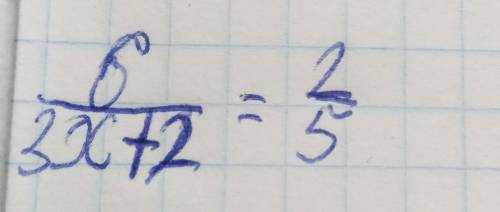 6/(3x+2) = 2/5